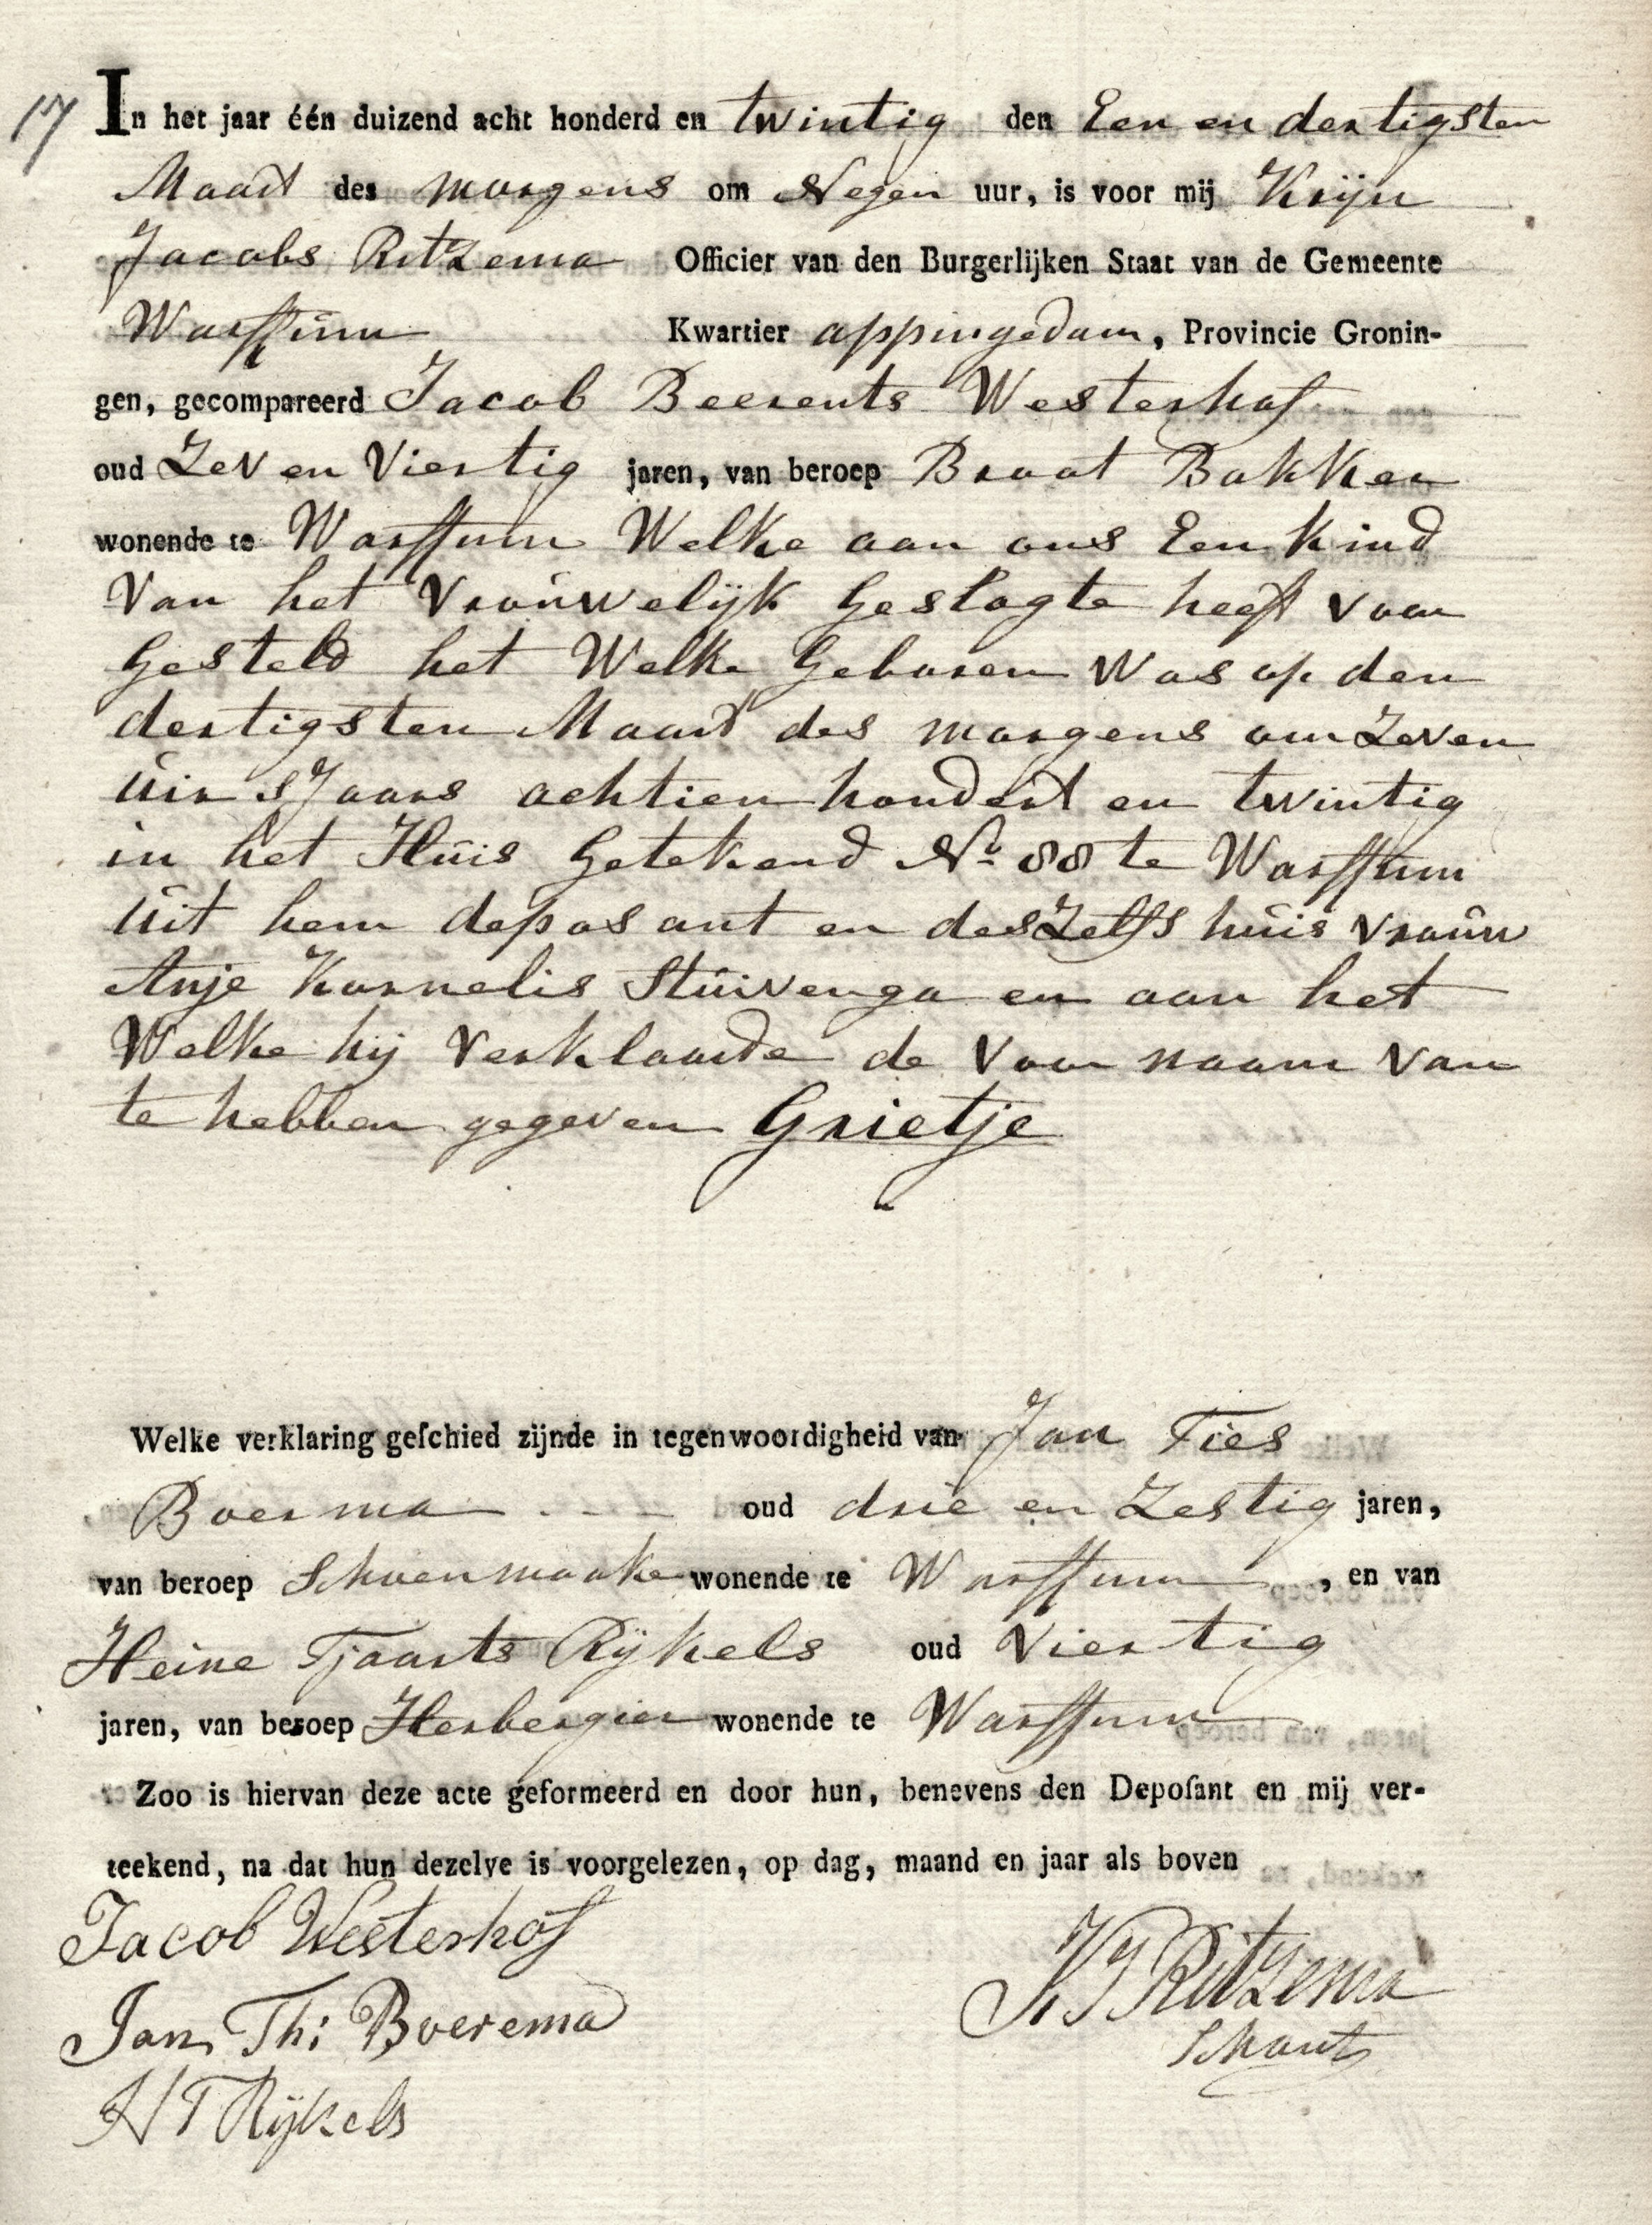 17 In het jaar één duizend acht honderd en twintig den Een en dertigsten
Maart des morgens om Negen uur, is voor mij Krijn
Jacobs Ritzema Officier van den Burgerlijken Staat van de Gemeente
Warffum Kwartier appingedam, Provincie Gronin-
gen, gecompareerd Jacob Beerents Westerhof
oud Zeven Viertig jaren, van beroep Broot Bakker
wonende te Warffum Welke aan ons Een kind
Van het Vrouwelijk Geslagte heeft voor
Gesteld het Welke Geboren Was op den
dertigsten Maart des morgens om Zeven
uir SJaars achtien hondert en twintig
in het Huis Getekend No 88 te Warffum
uit hem deposant en deszelfs huis vrouw
Anje Kornelis Stuivenga en aan het
Welke hij Verklaarde de Voor naam Van
te hebben gegeven Grietje
Welke verklaring geſchied zijnde in tegenwoordigheid van Jan Ties
Boerma - - - oud drie en Zestig jaren,
van beroep Schoenmaake wonende te Warffum, en van
Heine Tjaarts Rijkels oud Viertig
jaren, van beroep Herbergier wonende te Warffum
Zoo is hiervan deze acte geformeerd en door hun, benevens den Depoſant en mij ver-
teekend, na dat hun dezelve is voorgelezen, op dag, maand en jaar als boven
Jacob Westerhof
K J Ritzema
Schout
Jan Th: Boerema
H T Rijkels